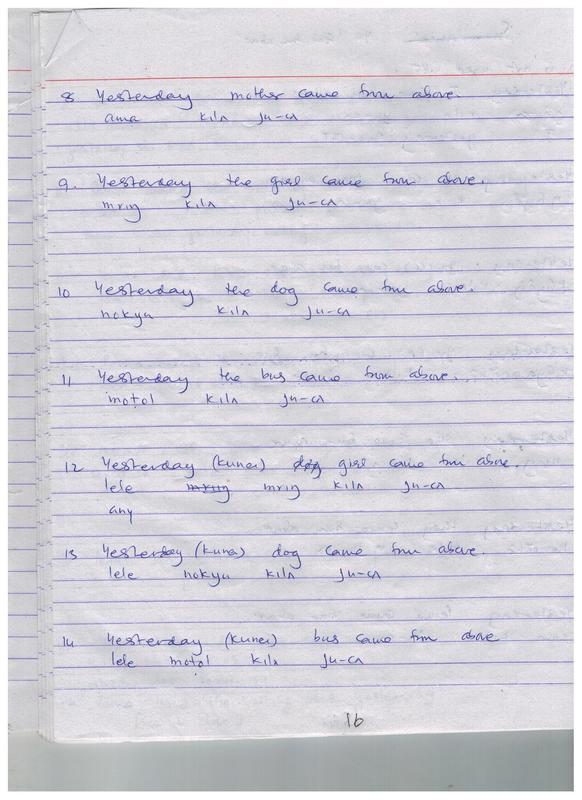 8 Yesterday mother came from above.
ama kilʌ ju-cʌ
9. Yesterday the girl came from above.
mrıŋ kilʌ ju-cʌ
10 Yesterday the dog came from above.
nokyu kilʌ ju-cʌ
11 Yesterday the bus came from above.
moṭol kilʌ ju-cʌ
12 Yesterday (kunei) dog girl came from above.
lele mrıŋ mrıŋ kilʌ ju-cʌ
any
13 Yesterday (kunei) dog came from above.
lele nokyu kilʌ ju-cʌ
14 Yesterday (kunei) bus came from above
lele moṭol kilʌ ju-cʌ
16